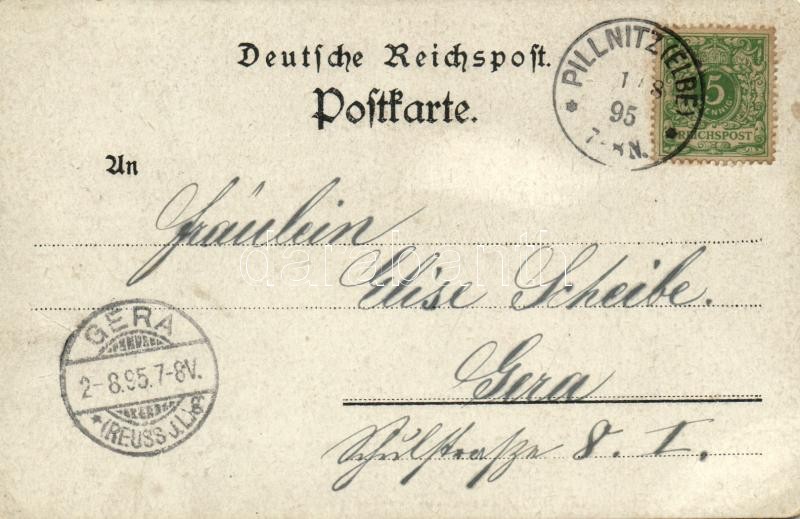 Deutsche Reichspost.
Postkarte.
PILLNITZ (ELBE)
1/8
95
7-8N.
5
PFENNIG
REICHSPOST
An
Fräulein
Elise Scheibe.
Gera
Schulstraße 8. I.
GERA
2-8.95.7-8V.
*(REUSS J.L.)*
darabanth